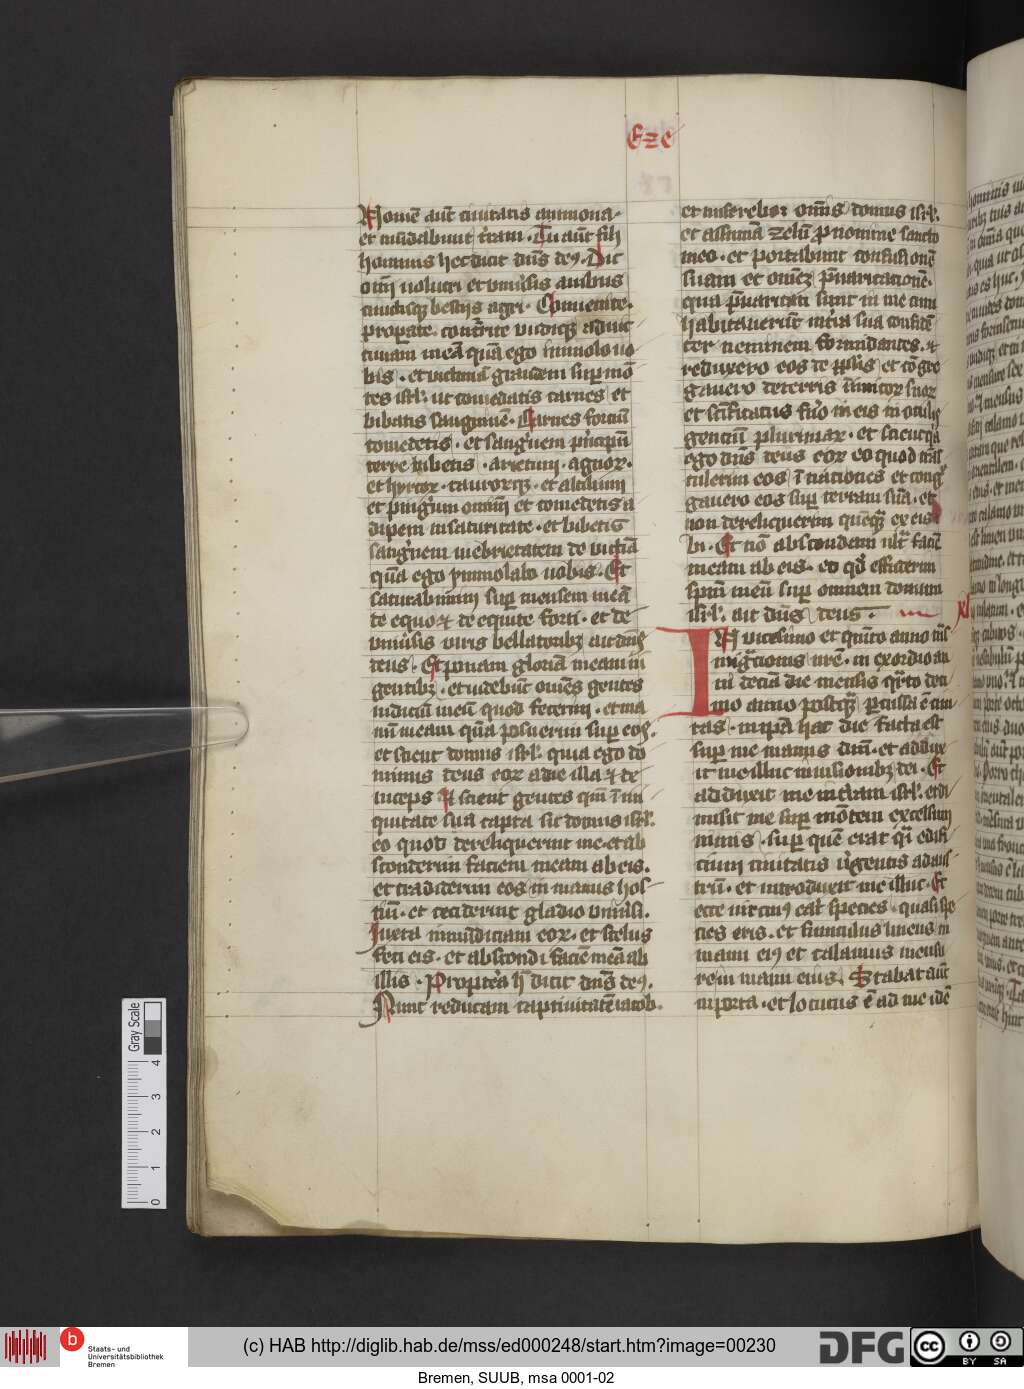 Eze
Nomē aūt ciuitatis ammona·
et mūdabunt terram · Tu aūt fili
hominis hec dicit dn̄s deꝰ · Dic
om̄i uolucri et vniuersis auibus
cunctisqꝫ bestijs agri · Conuenite·
properate concurrite vndiqꝫ ad vic
timam meā quā ego immolo uo
bis · et victimā grandem super mō
tes isrl̄ · ut comedatis carnes et
bibatis sanguinē · Carnes fortiū
comedetis · et sanguinem pͥncipū
terre bibetis · arietum · agnoꝝ·
et hyrcoꝝ · tauroꝝqꝫ · et altilium
et pinguium omniū et comedetis a
dipem in saturitate · et bibetis
sanguinem in ebrietatem de victīa
quā ego ymmolabo uobis · Et
saturabimini super mensem meā
de equo ⁊ de equite forti · et de
vniuersis viris bellatoribꝫ ait dn̄s
deus · Et ponam gloriā meam in
gentibꝫ · et videbūt om̄es gentes
iudiciū meū quod fecerim · et ma
nū meam quā posuerim super eos·
et scient domus isrl̄ · quia ego do
minus deus eoꝝ a die illa ⁊ de
inceps Et scient gentes qm̄ ī ini
quitate sua capta sit domus isrl̄·
eo quod dereliquerint me · et ab
sconderim faciem meam ab eis·
et tradiderim eos in manus hos
tiū · et ceciderint gladio vniuersi·
Iuxta inmūdiciam eoꝝ · et scelus
feci eis · et abscondi faciē meā ab
illis · Propterea hͦ dicit dn̄s deꝰ·
Nunc reducam captiuitatē iacob·
et miserebor om̄is domus isrl̄·
et assumā zelū ꝓ nomine sancto
meo · et portabunt confusionē
suam et omnē p̄uaricacionē·
qua p̄uaricati sunt in me cum
habitauerūt in terra sua confidē
ter neminem formidantes · ⁊
reduxero eos de ppl̄is et cōgre
gauero de terris inimicoꝝ suoꝝ
et scīficatus fuero in eis in oculis
gentiū plurimaꝝ · et scient quia
ego dn̄s deus eoꝝ eo quod trās
tulerim eos ī naciones et cong
gauero eos super terram suā · et
non dereliquerim quēqꝫ ex eis i
bi · Et nō abscondam ultra faciē
meam ab eis · eo qd̄ effuderim
spm̄ meū super omnem domum
isrl̄ · ait dn̄s deus · xl
IN vicesimo et quīto anno trās
migracionis nr̄e · in exordio an
ni decīa die mensis quarto deci
mo anno postqꝫ percussa ē ciui
tas · in ipā hac die facta est
super me manus dn̄i · et addux
it me illuc in visionibꝫ dei · Et
adduxit me in terram isrl̄ · et di
misit me super mōtem excelsum
nimis · super quē erat qͣsi edifi
cium ciuitatis uergentis ad aus
trū · et introduxit me illuc · Et
ecce vir cuiꝰ erat species · quasi spe
cies eris · et funiculus lineus in
manu eiꝰ et calamus mensu
re in manu eius · Stabat aūt
in porta · et locutus ē ad me idē
Gray Scale
0 1 2 3 4
b Staats- und
Universitätsbibliothek
Bremen
(c) HAB http://diglib.hab.de/mss/ed000248/start.htm?image=00230
DFG
cc BY SA
Bremen, SUUB, msa 0001-02